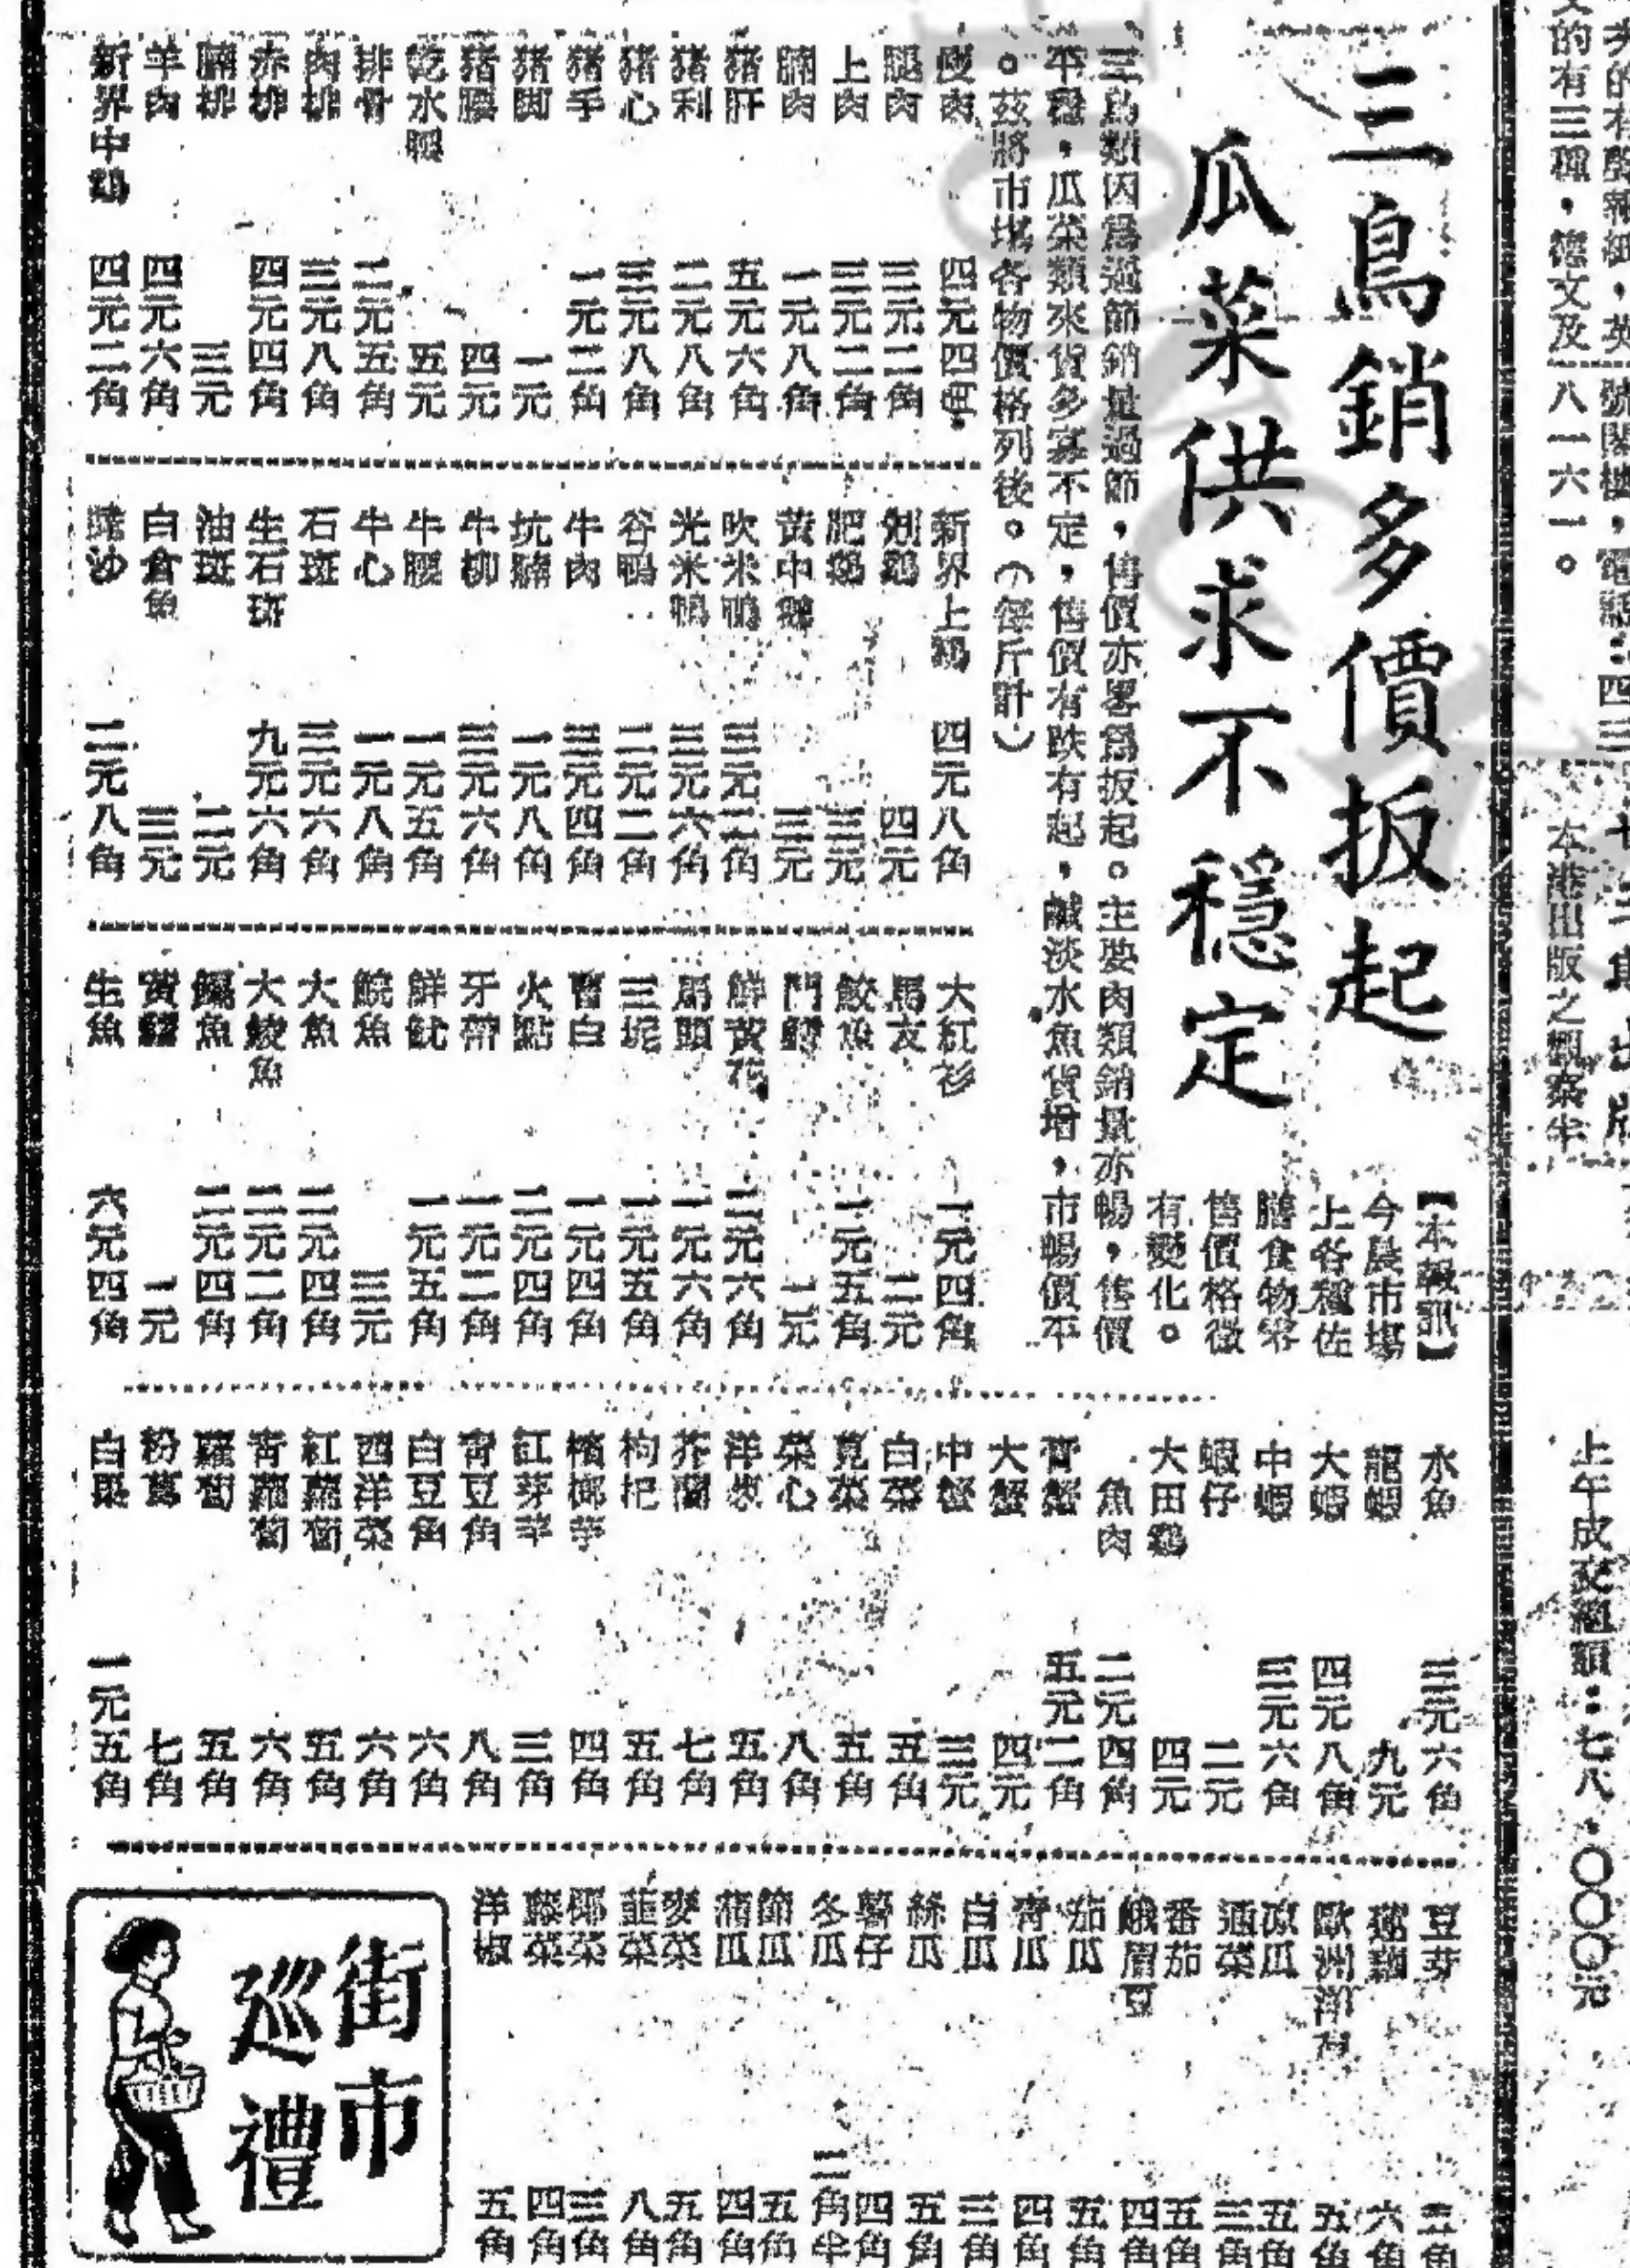 三鳥銷多價扳起
瓜菜供求不穩定
【本報訊】
今晨市場
上各種佐
膳食物零
售價格微
有變化。
三鳥類因爲過節銷量過節，售價亦畧爲扳起。主要肉類銷量亦暢，售價
平穩，瓜菜類來貨多寡不定，售價有跌有起，鹹淡水魚貨增，市暢價平
。茲將市場各物價格列後。（每斤計）
瘦肉 四元四
腿肉 三元二角
上肉 三元二角
腩肉 一元八角
猪肝 五元六角
猪利 二元八角
猪心 三元八角
猪手 一元二角
猪脚 一元
猪腰 四元
乾水 五元
排骨 二元五角
肉排 三元八角
赤排 四元四角
腩排 三元
羊肉 四元六角
新界中鷄 四元二角
新界上鷄 四元八角
四元
肥鷄 三元
黃中鵝 三元
吹米鴨 三元二角
光米鴨 三元六角
谷鴨 二元二角
牛肉 三元四角
坑腩 一元八角
牛柳 三元六角
牛腰 一元五角
牛心 一元八角
石斑 三元六角
生石斑 九元六角
油斑 二元
白倉魚 三元
二元八角
大紅衫 一元四角
馬友 二元
鮫魚 一元五角
門鱔 二元
鮮黃花 二元六角
馬頭 一元六角
三坭 一元五角
曹白 一元四角
火點 二元四角
牙帶 一元二角
鮮魷 一元五角
鯇魚 三元
大魚 二元四角
大鯪魚 二元二角
魚 二元四角
黃 一元
生魚 六元四角
水魚 三元六角
龍蝦 九元
大蝦 四元八角
中蝦 三元六角
蝦仔 二元
大田鷄 四元
魚肉 二元四角
膏蟹 五元二角
大蟹 四元
中蟹 三元
白菜 五角
莧菜 五角
菜心 八角
洋葱 五角
芥蘭 七角
枸杞 五角
檳榔芋 四角
紅芽芋 三角
青豆角 八角
白豆角 六角
西洋菜 六角
紅蘿蔔 五角
青蘿蔔 六角
蘿蔔 五角
粉葛 七角
白果 一元五角
豆芽 三角
蓮藕 六角
歐洲 五角
凉瓜 五角
通菜 三角
番茄 五角
峨眉豆 四角
茄瓜 五角
青瓜 四角
白瓜 三角
絲瓜 五角
薯仔 四角
冬瓜 二角半
節瓜 五角
蒲瓜 四角
麥菜 五角
韮菜 八角
椰菜 三角
藤菜 四角
洋椒 五角
街市
巡禮